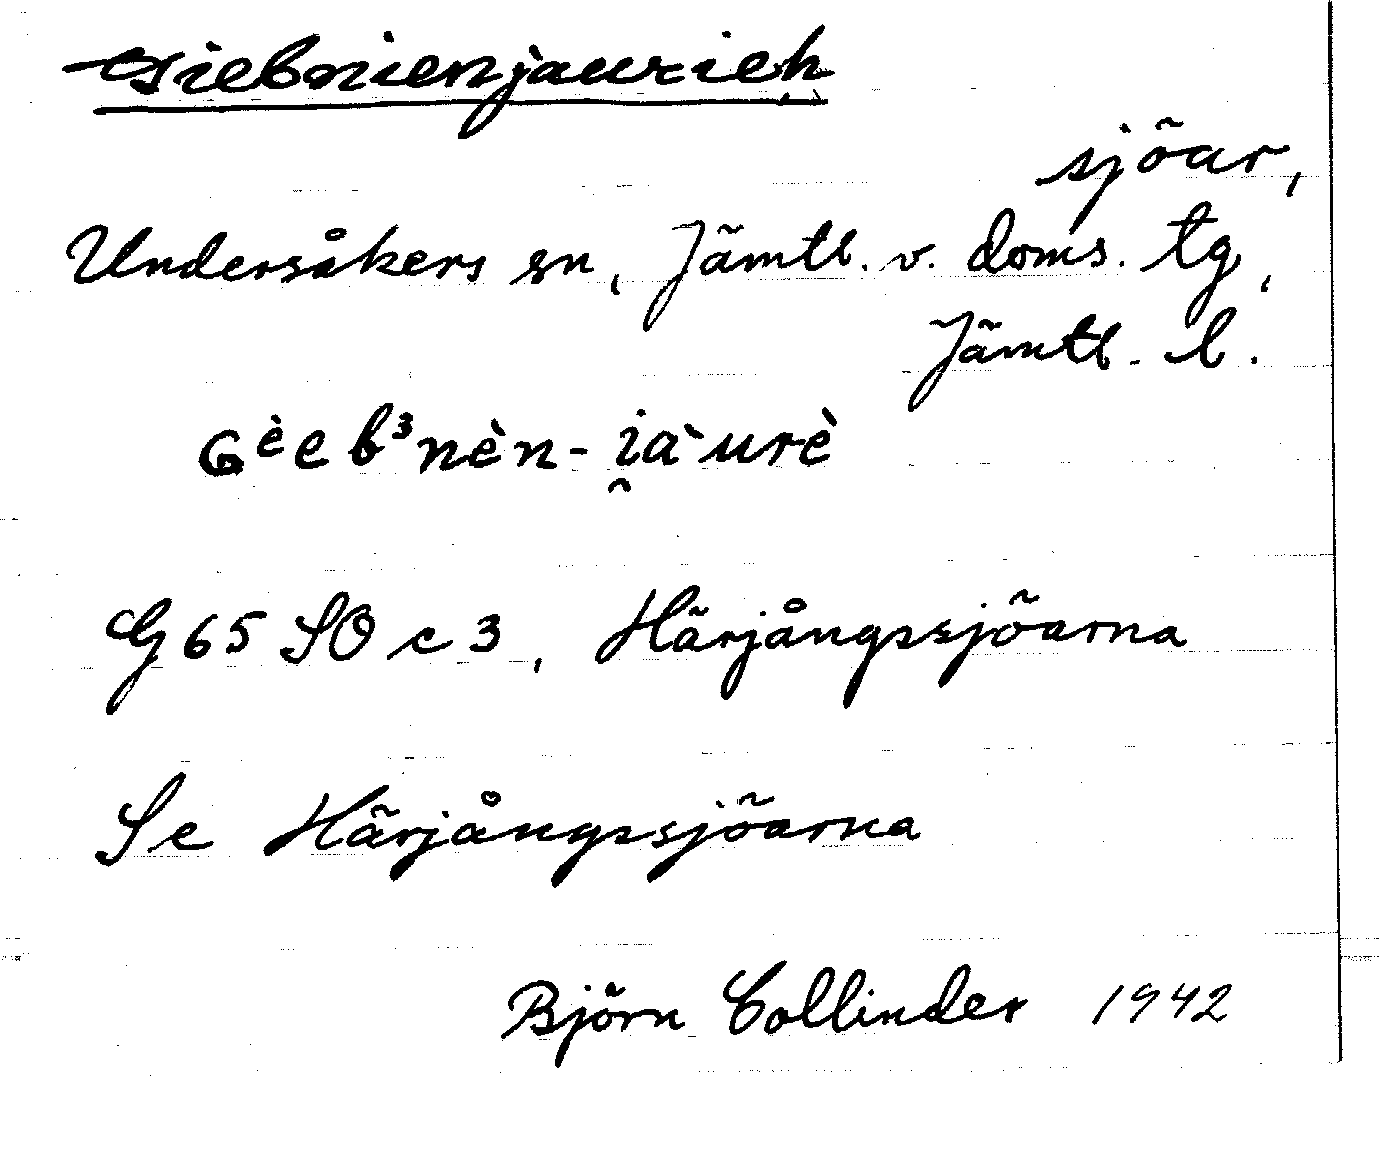 Giebnienjaurieh
sjöar,
Undersåkers sn, Jämtl. v. doms. tg,
Jämtl. l.
Gèeb³nèn-i̯àurè
G 65 SO c 3, Härjångssjöarna
Se Härjångssjöarna
Björn Collinder 1942